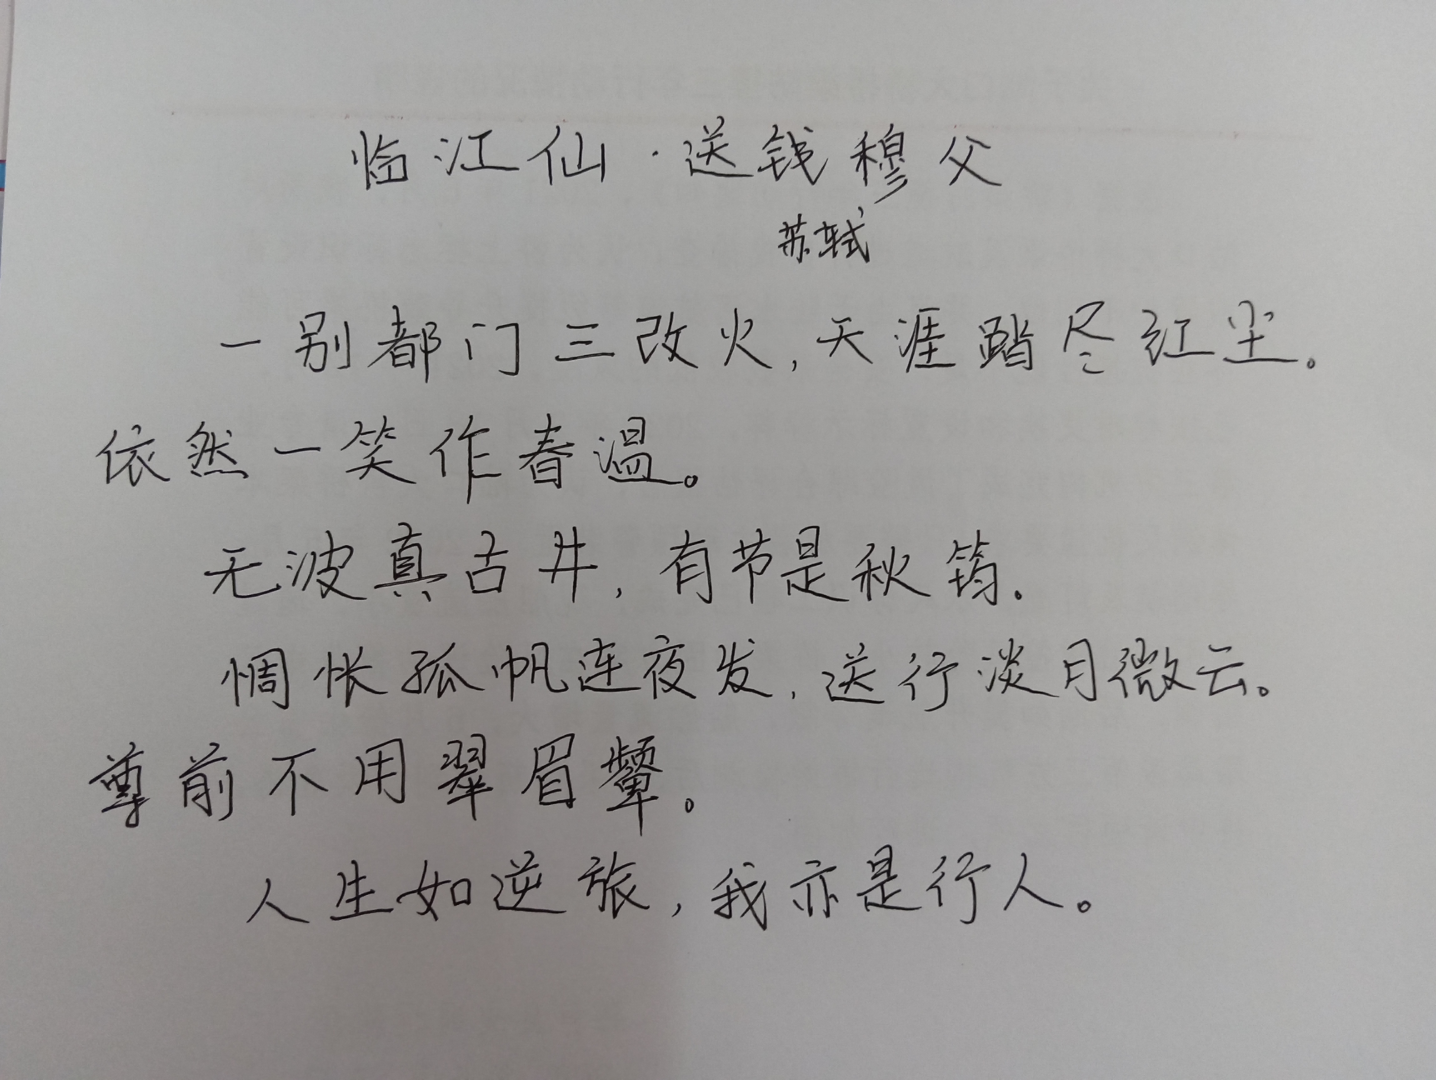 临江仙·送钱穆父
苏轼
一别都门三改火,天涯踏尽红尘。
依然一笑作春温。
无波真古井,有节是秋筠.
惆怅孤帆连夜发,送行淡月微云。
尊前不用翠眉颦。
人生如逆旅,我亦是行人。